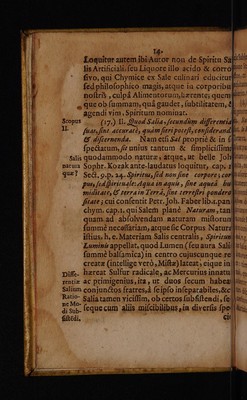 14.
Loquitur autem ibi Autor non de Spiritu Sa
lis Artificiali, seu Liquore illo acido & corro
sivo, qui Chymice ex Sale culinari educitur
sed philosophico magis, atque in corporibus
nostris, culpâ Alimentorum, hærente; quem
que ob summam, quâ gaudet, subtilitatem, &
agendi vim, Spiritum nominat.
Scopus
II.
(17.) II. Quod Salia, secundum differentias
suas, sint accuratè, quàm fieri potest, consideranda
& discernenda. Nam etsi Sal propriè & in se
spectatum, sit unius tantum & simplicissimæ
Salis
natura
quæ?
quodammodo naturæ; atque, ut belle Joh.
Sophr. Kozak ante-laudatus loquitur, cap. 1.
Sect. 9. p. 24. Spiritus, sed non sine corpore; cor
pus, sed spirituale: Aqua in aquis, sine aqueâ hu
miditate, & terra in Terra, sine terrestri pondero
sitate; cui consentit Petr. Joh. Faber lib. 2. pan
chym. cap. 1. qui Salem planè Naturam, tan
quam ad absolvendum naturam mistorum
summè necessariam, atque sic Corpus Naturæ
istius, h. e. Materiam Salis centralis, Spiritum
Luminis appellat, quod Lumen (seu aura Salis
summè balsamica) in centro cujuscunque rei
creatæ (intellige verò, Mistæ) lateat, eique in
Diffe-
rentiæ
Salium
Ratio-
ne Mo-
di Sub-
sistendi.
hæreat Sulfur radicale, ac Mercurius innatus
ac primigenius, ita, ut duos secum habeat
conjunctos fratres, à se ipso inseparabiles, &c.
Salia tamen vicissim, ob certos subsistendi, se
seque cum aliis miscibilibus, in diversis spe